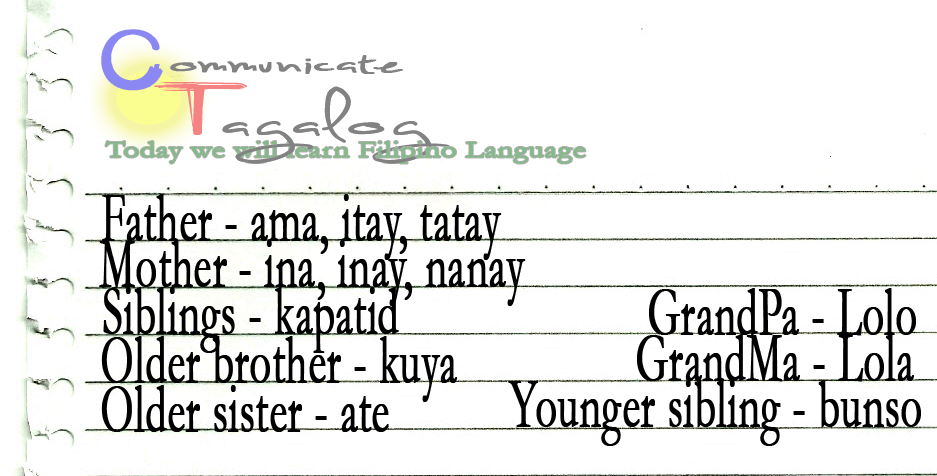 Communicate
Tagalog
Today we will learn Filipino Language
Father - ama, itay, tatay
Mother - ina, inay, nanay
Siblings - kapatid
Older brother - kuya
Older sister - ate
GrandPa - Lolo
GrandMa - Lola
Younger sibling - bunso